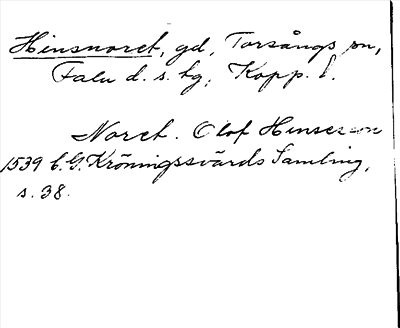 Hinsnoret, gd, Torsångs sn,
Falu d. s. tg, Kopp. l.
Noret. Olof Hinsesson
1539 C. G. Kröningssvärds Samling,
s. 38.